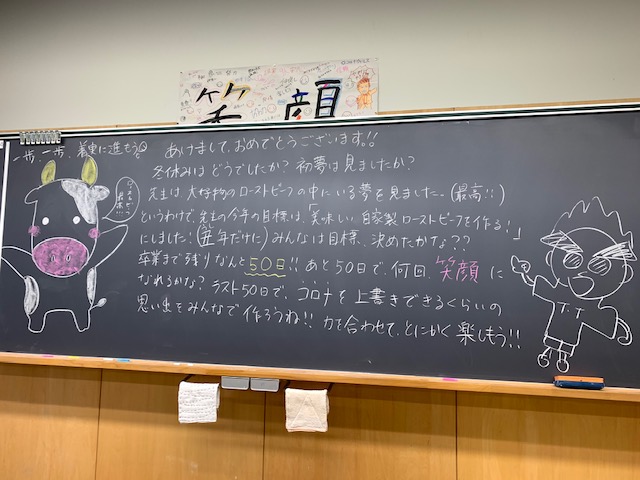 笑顔
一歩一歩、着実に進もう
あけまして、おめでとうございます!!
冬休みはどうでしたか?初夢は見ましたか?
先生は大好物のローストビーフの中にいる夢を見ました。(最高!!)
というわけで、先生の今年の目標は、「美味しい自家製ローストビーフを作る!」
にしました!(丑年だけに)みんなは目標、決めたかな??
卒業まで残りなんと50日!!あと50日で、何回、笑顔に
なれるかな?ラスト50日で、コロナを上書きできるくらいの
思い出をみんなで作ろうね!!力を合わせて、とにかく楽しもう!!
T.T